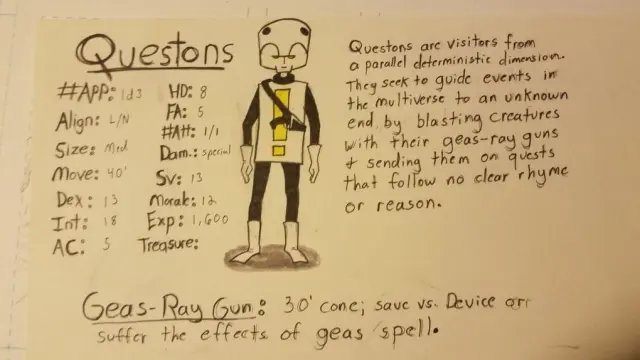 Questons
#APP: 1d3
Align: L/N
Size: Med
Move: 40'
Dex: 13
Int: 18
AC: 5
HD: 8
FA: 5
#Att: 1/1
Dam.: special
Sv: 13
Morale: 12
Exp: 1,600
Treasure:
!
Questons are visitors from
a parallel deterministic dimension.
They seek to guide events in
the multiverse to an unknown
end by blasting creatures
with their geas-ray guns
& sending them on quests
that follow no clear rhyme
or reason.
Geas-Ray Gun: 30' cone; save vs. Device or
suffer the effects of geas spell.